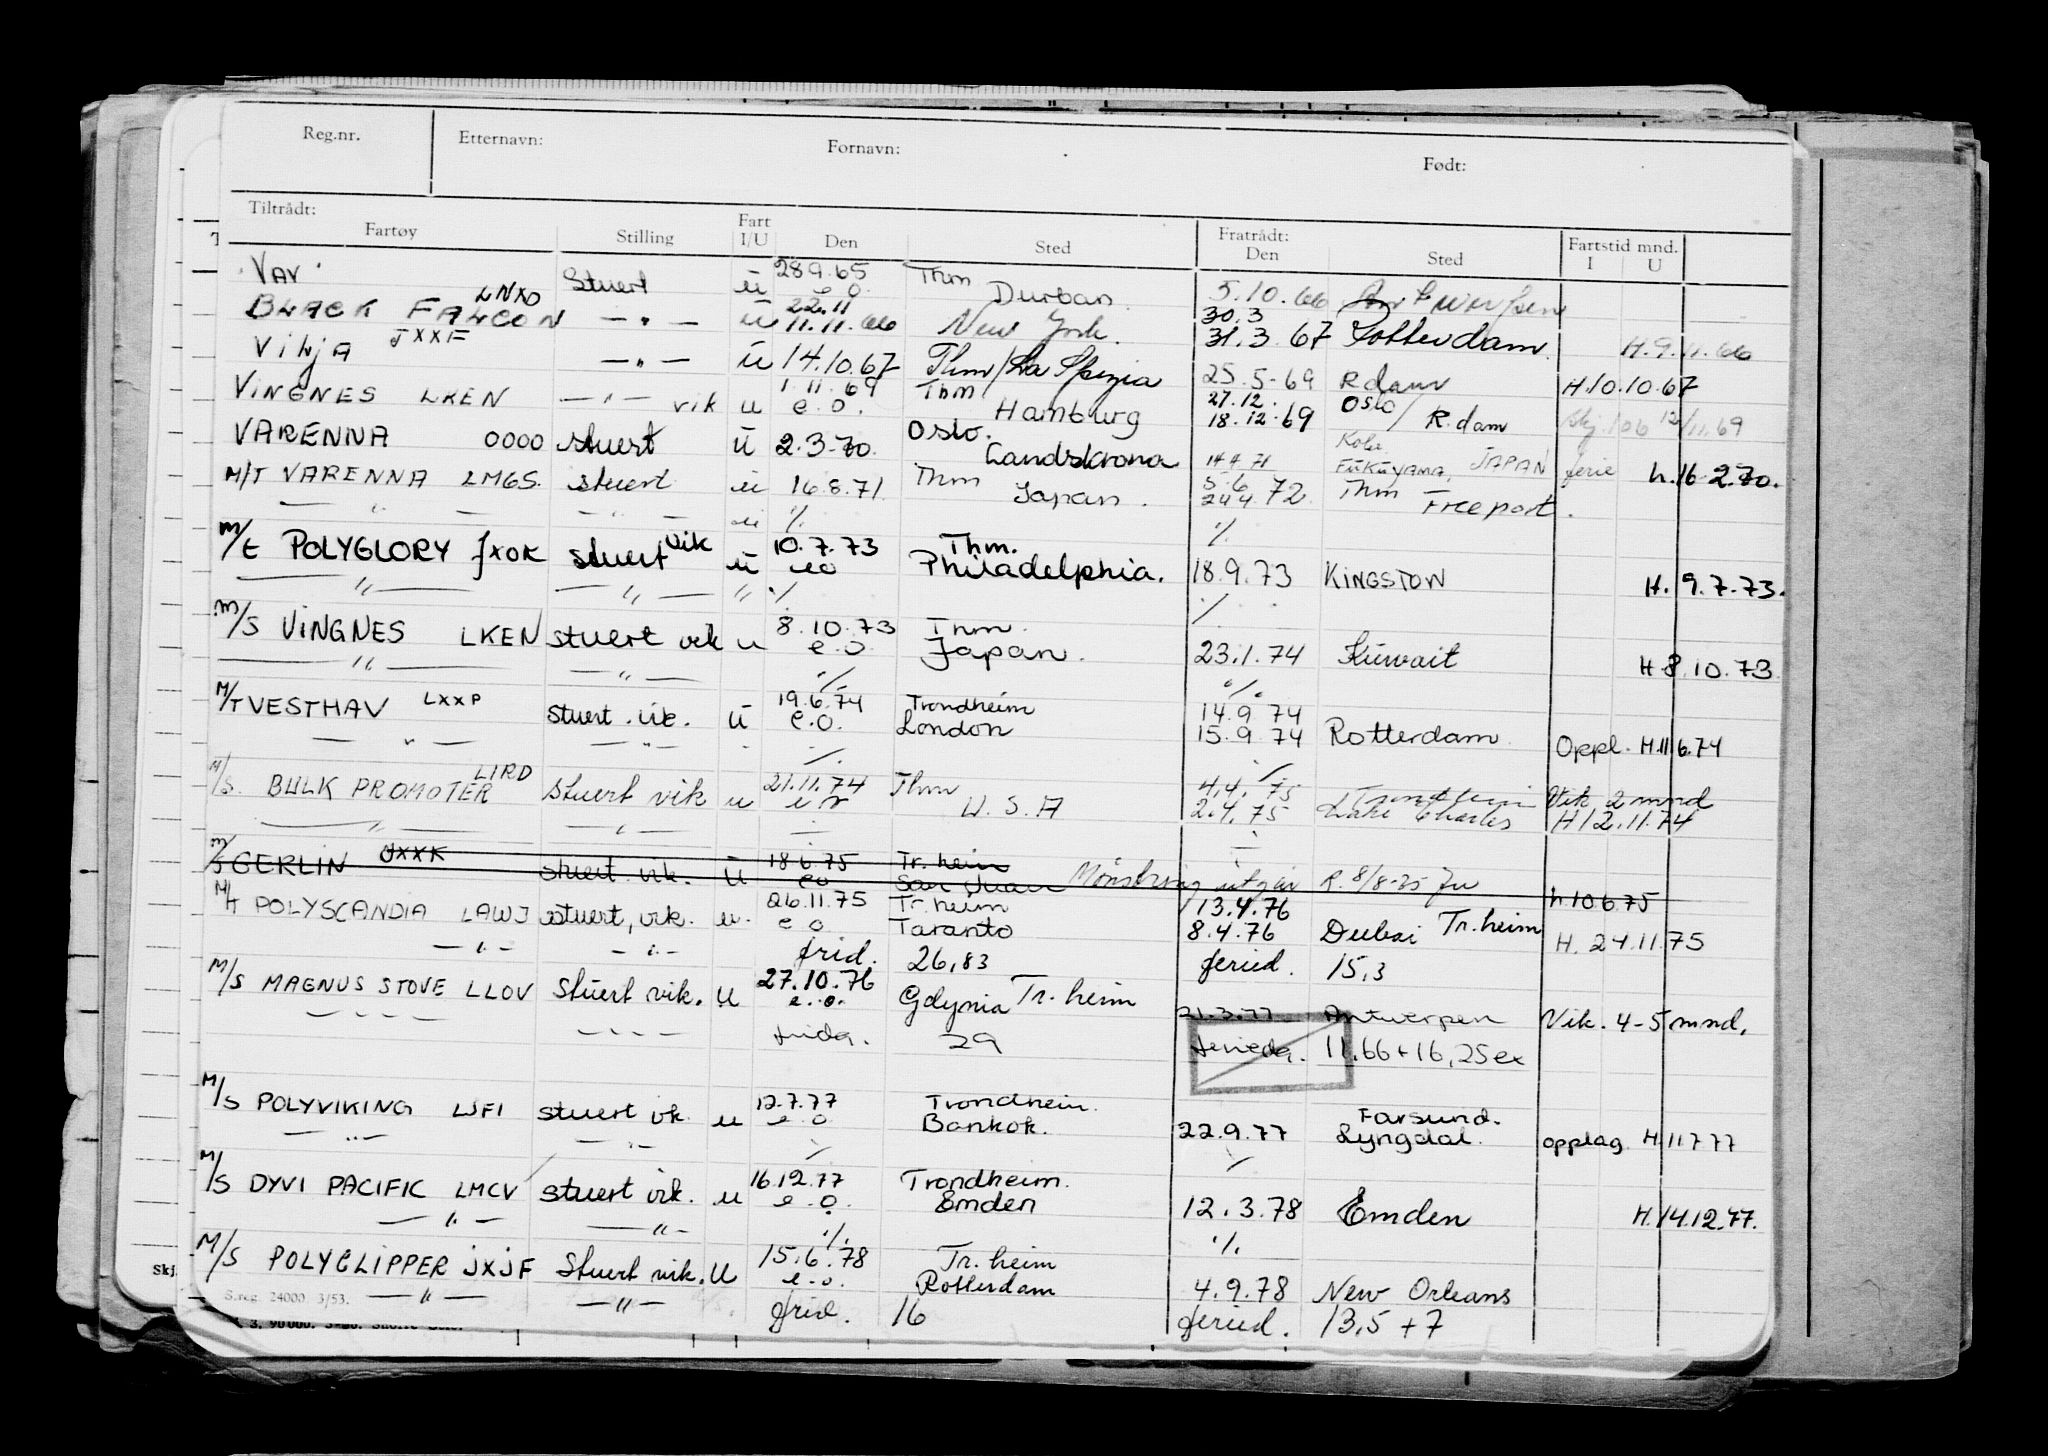 Reg.nr. Etternavn: Fornavn: Født:
Tiltrådt: Fartøy Stilling Fart I/U Den Sted Fratrådt: Den Sted Fartstid mnd. I U
VAV Stuert u 28.9.65 e.o. Thm Durban 5.10.66 Antwerpen
BLACK FALCON LNXO — " — u 22.11 11.11.66 New York. 30.3 31.3.67 Rotterdam. H.9.11.66
Vilja JXXF — " — u 14.10.67 Thm/La Spezia 25.5.69 Rdam H.10.10.67
VINGNES LKEN — " — vik u 1.11.69 e.o. Thm Hamburg 27.12. 18.12.69 Oslo / R.dam 106 12/11.69
VARENNA 0000 stuert u 2.3.70. Oslo. Landskrona 14.4.71 Kobe FUKUYAMA, JAPAN ferie h.16.2.70.
M/T VARENNA LMGS. stuert u 16.8.71. Thm Japan. 5.6 24.4.72 Thm Freeport.
— " — — " — u ./. ./.
M/T POLYGLORY JXOK stuert vik u 10.7.73 eo Thm. Philadelphia. 18.9.73 KINGSTON H. 9.7.73.
— " — — " — " ./. ./.
M/S VINGNES LKEN stuert vik u 8.10.73 e.o. Thm. Japan. 23.1.74 Kuwait H 8.10.73
— " — — " — ./. ./.
M/T VESTHAV LXXP stuert. vik. u 19.6.74 e.o. Trondheim London 14.9.74 15.9.74 Rotterdam Oppl. H.11.6.74
— " — — " — ./. ./.
M/S. BULK PROMOTER LIRD Stuert vik u 21.11.74 Thm U.S.A 4.4.75 2.4.75 Trondheim Lake Charles Vik 2 mnd H 12.11.74
— " — — " —
M/S GERLIN JXXK stuert vik. u 18.6.75 eo Tr.heim San Juan Mønstring utgår R. 8/8-75 h 10.6.75
M/T POLYSCANDIA LAWJ stuert, vik. u. 26.11.75 e o Tr.heim Taranto 13.4.76 8.4.76 Dubai Tr.heim H. 24.11.75
— " — — " — frid. 26,83 feried. 15,3
M/S MAGNUS STOVE LLOV Stuert vik. u 27.10.76 e.o. Gdynia Tr.heim 21.3.77 Antwerpen Vik. 4-5 mnd.
— " — — " — frida. 29 ferieda. 11.66 + 16,25 ex
M/S POLYVIKING LJFI stuert vk. u 12.7.77 e.o. Trondheim. Bankok. 22.9.77 Farsund. Lyngdal. opplag H 11.7.77
— " — — " — ./. ./.
M/S DYVI PACIFIC LMCV stuert vik. u 16.12.77 e.o. Trondheim. Emden 12.3.78 Emden H.14.12.77.
— " — — " — ./. ./.
M/S POLYCLIPPER JXJF Stuert vik. u 15.6.78 e.o. Tr.heim Rotterdam 4.9.78 New Orleans
S.reg. 24000 3/53. — " — — " — frid. 16 feried. 13,5 + 7
Skj.